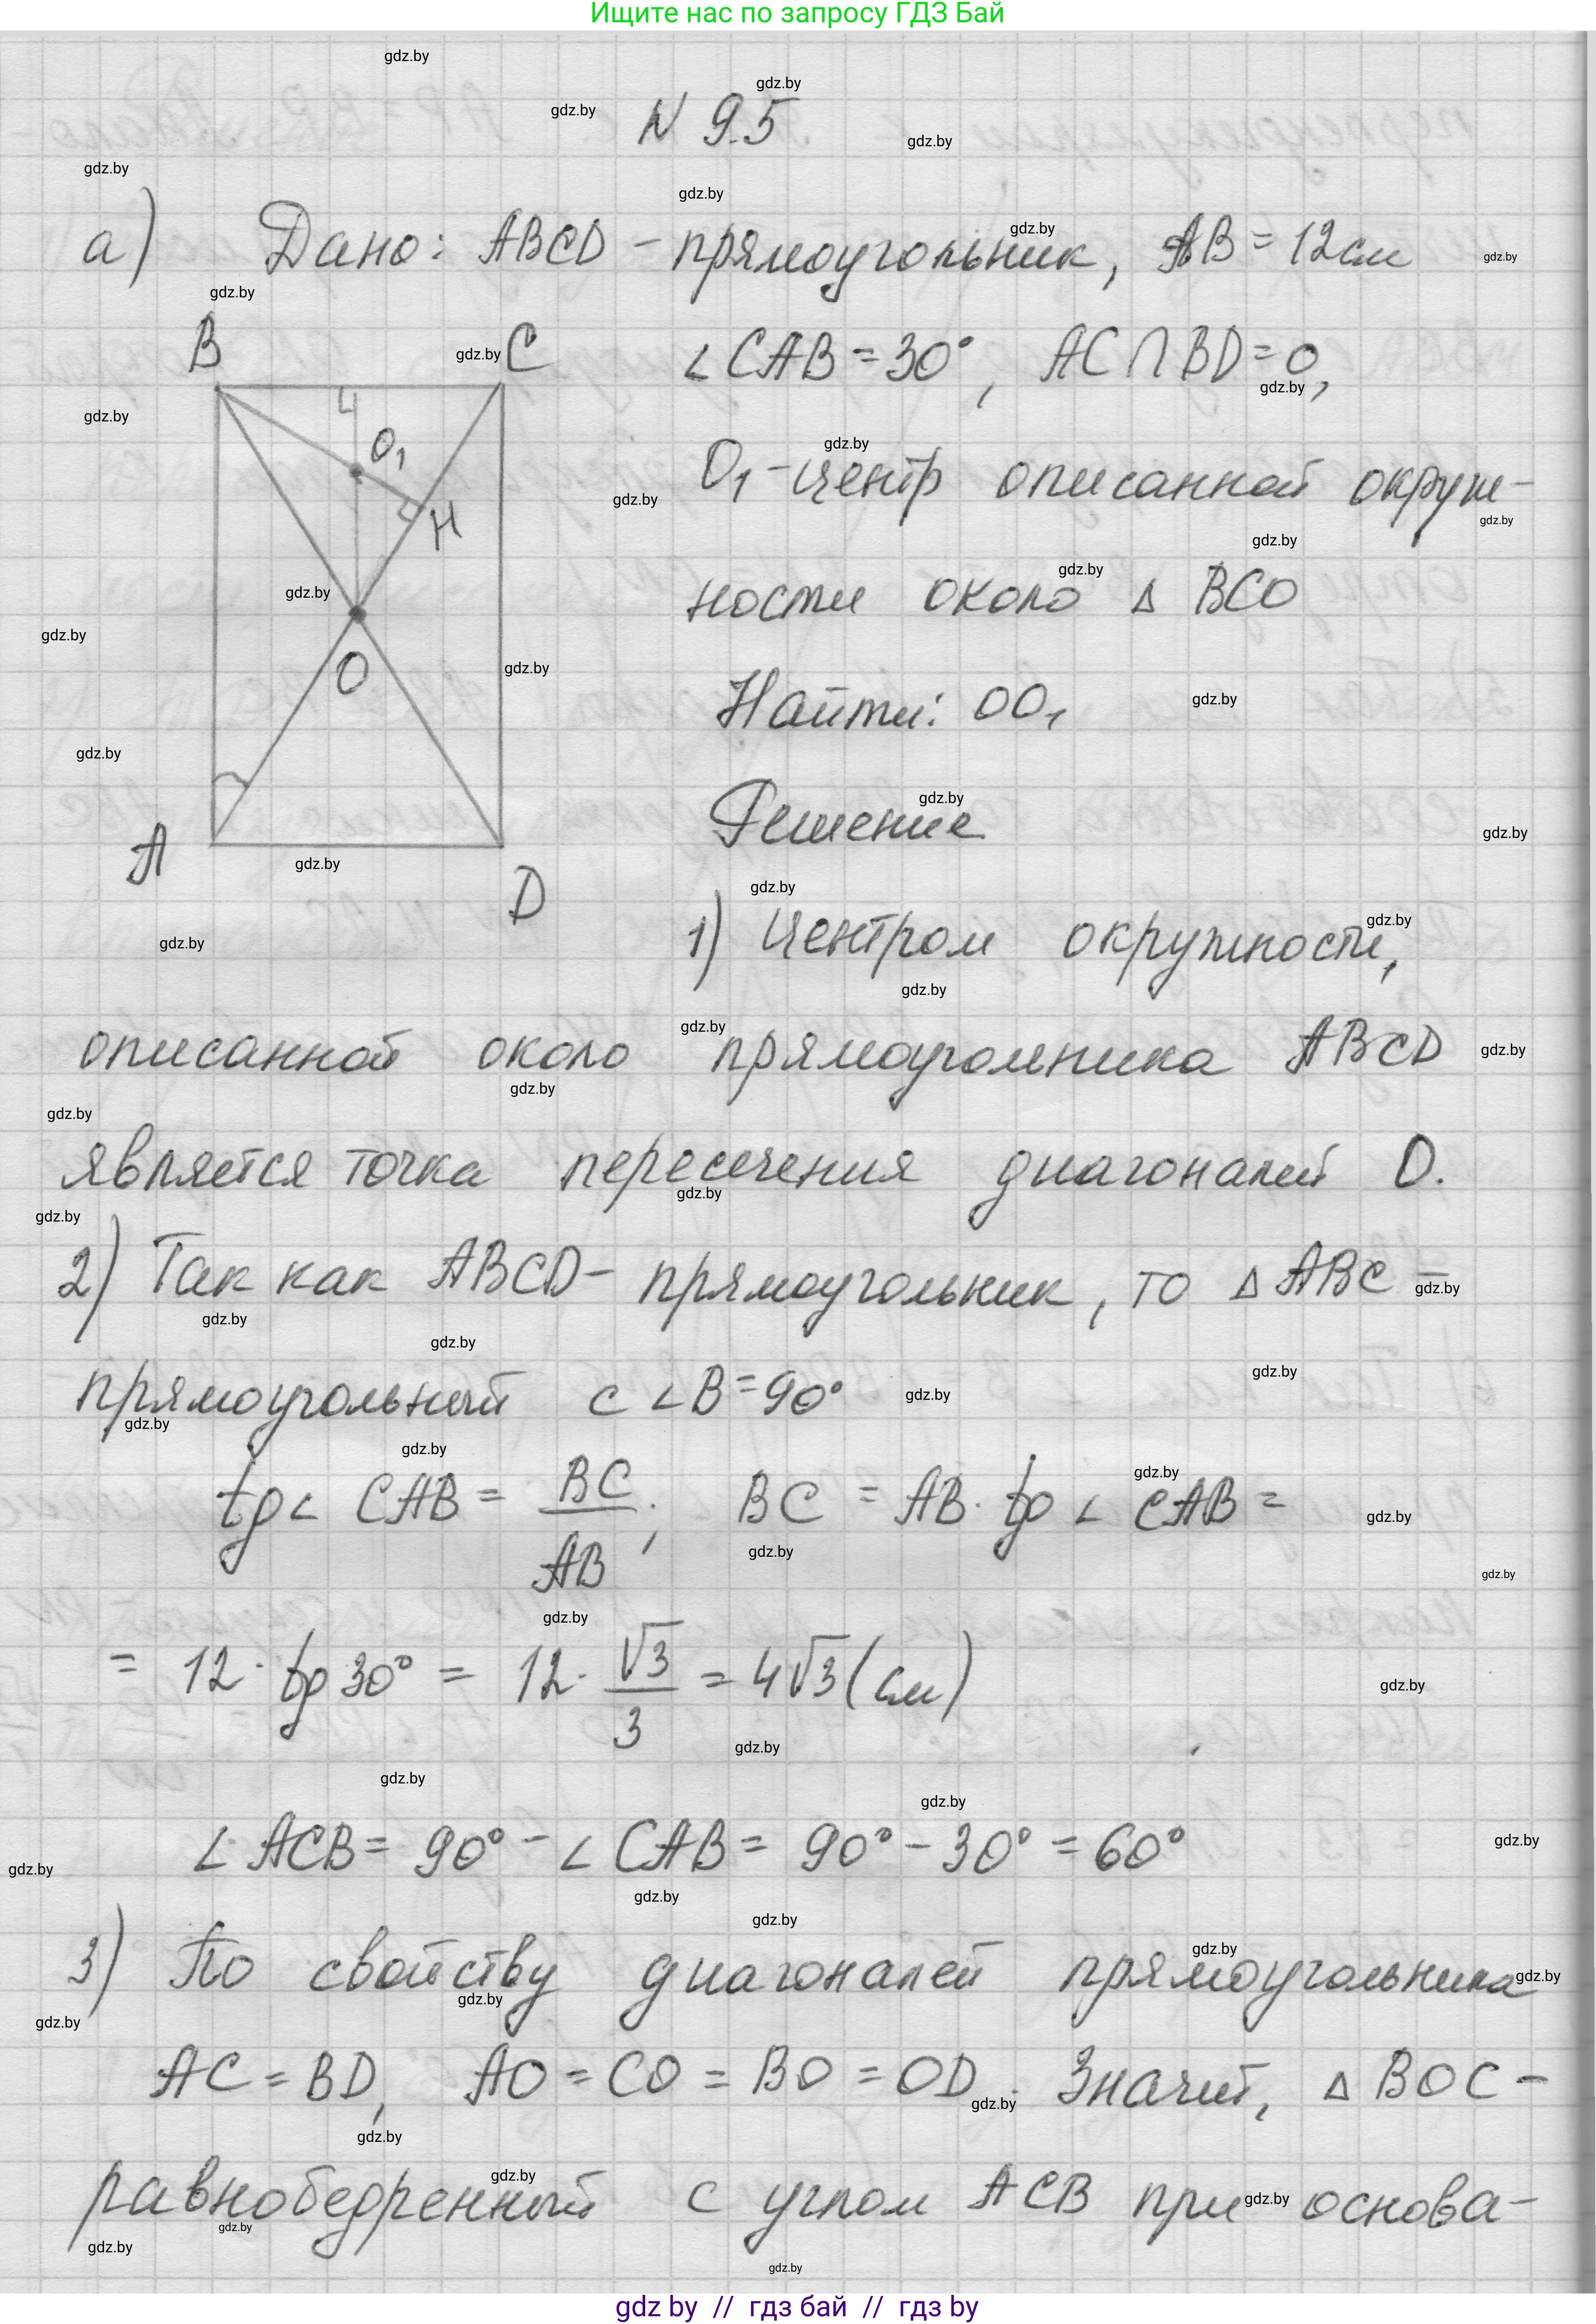 Ищите нас по запросу ГДЗ Бай
N 9.5
а) Дано: ABCD - прямоугольник, AB = 12 см
∠CAB = 30°, AC ∩ BD = O,
O₁ - центр описанной окруж-
ности около △ BCO
Найти: OO₁
Решение
B
C
O₁
H
O
A
D
1) Центром окружности,
описанной около прямоугольника ABCD
является точка пересечения диагоналей O.
2) Так как ABCD - прямоугольник, то △ ABC -
прямоугольный с ∠B = 90°
tg∠ CAB = BC/AB; BC = AB · tg ∠ CAB =
= 12 · tg 30° = 12 · √3/3 = 4√3 (см)
∠ ACB = 90° - ∠ CAB = 90° - 30° = 60°
3) По свойству диагоналей прямоугольника
AC = BD, AO = CO = BO = OD. Значит, △ BOC -
равнобедренный с углом ACB при основа-
gdz by // гдз бай // гдз by